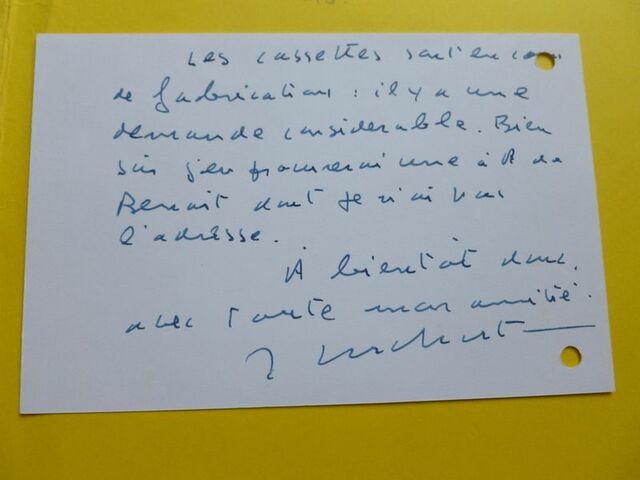 Les cassettes sont en cours
de fabrication : il y a une
demande considerable. Bien
sûr j'en une à A de
Benoist dont je n'ai pas
l'adresse.
À bientôt donc,
avec toute mon amitié.